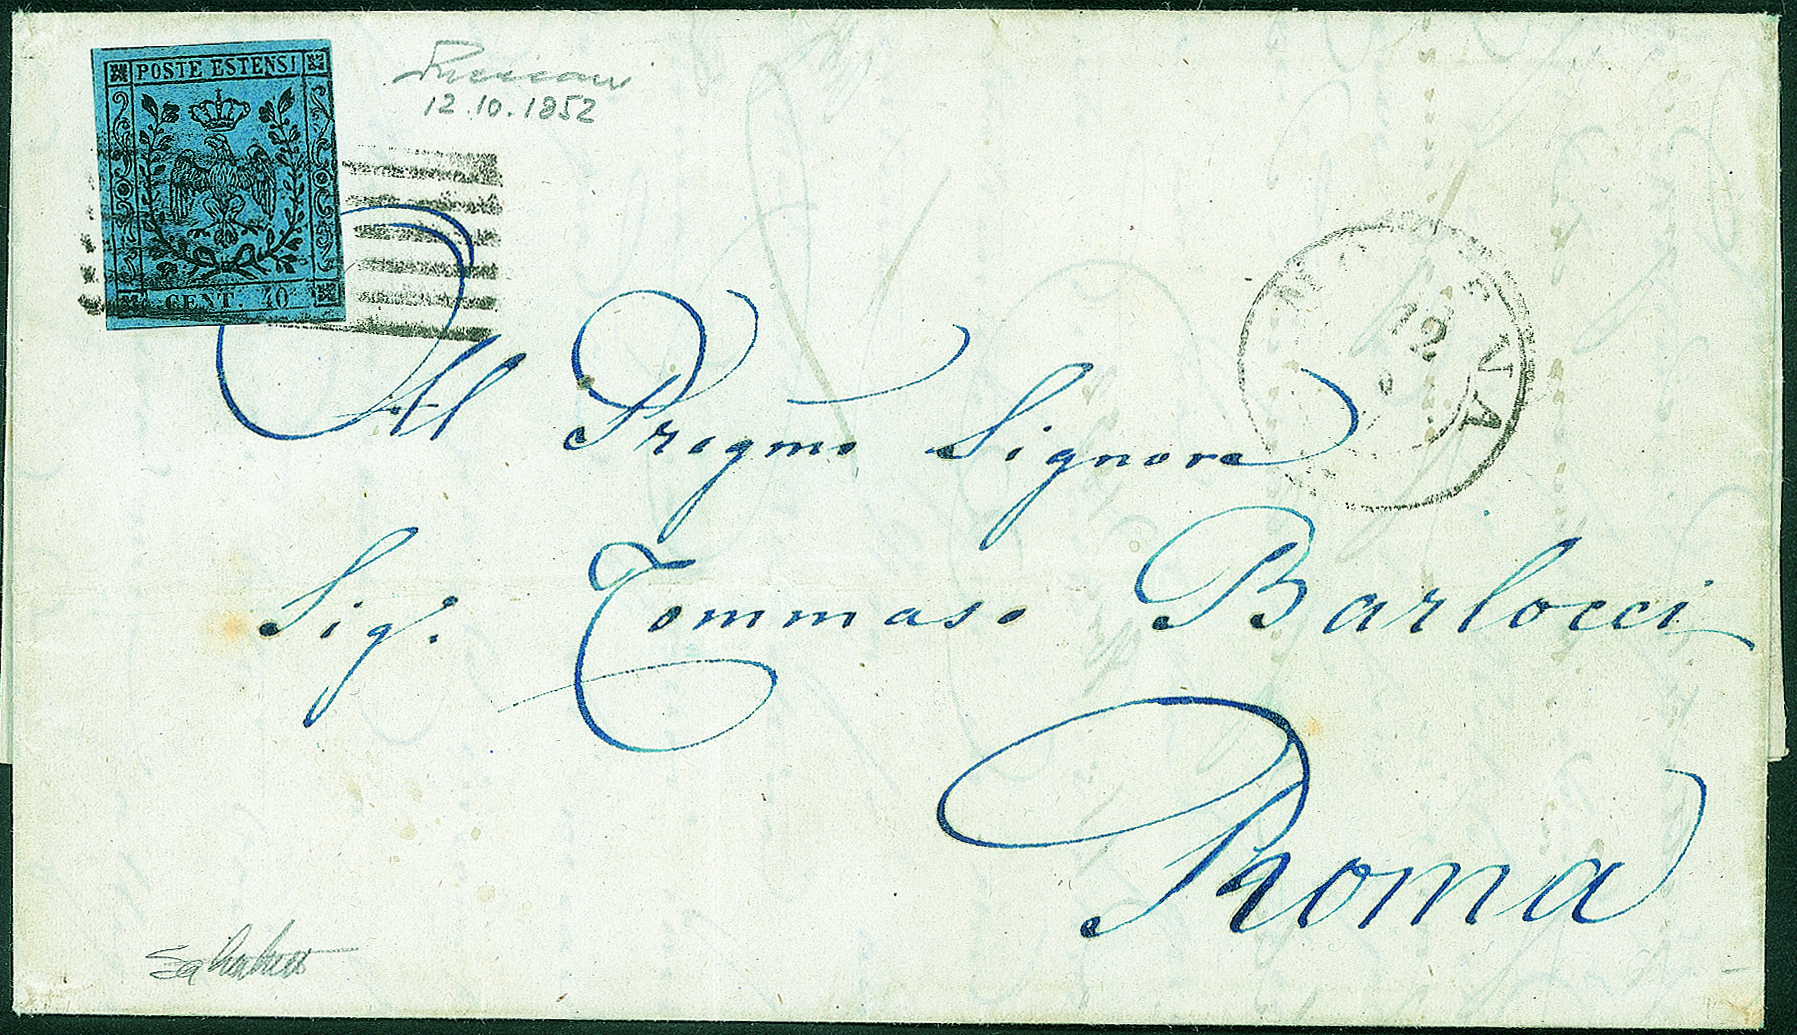 POSTE ESTENSI
CENT. 40
12.10.1852
12
Al Pregmo Signore
Sig.r Tommaso Barlocci
Roma